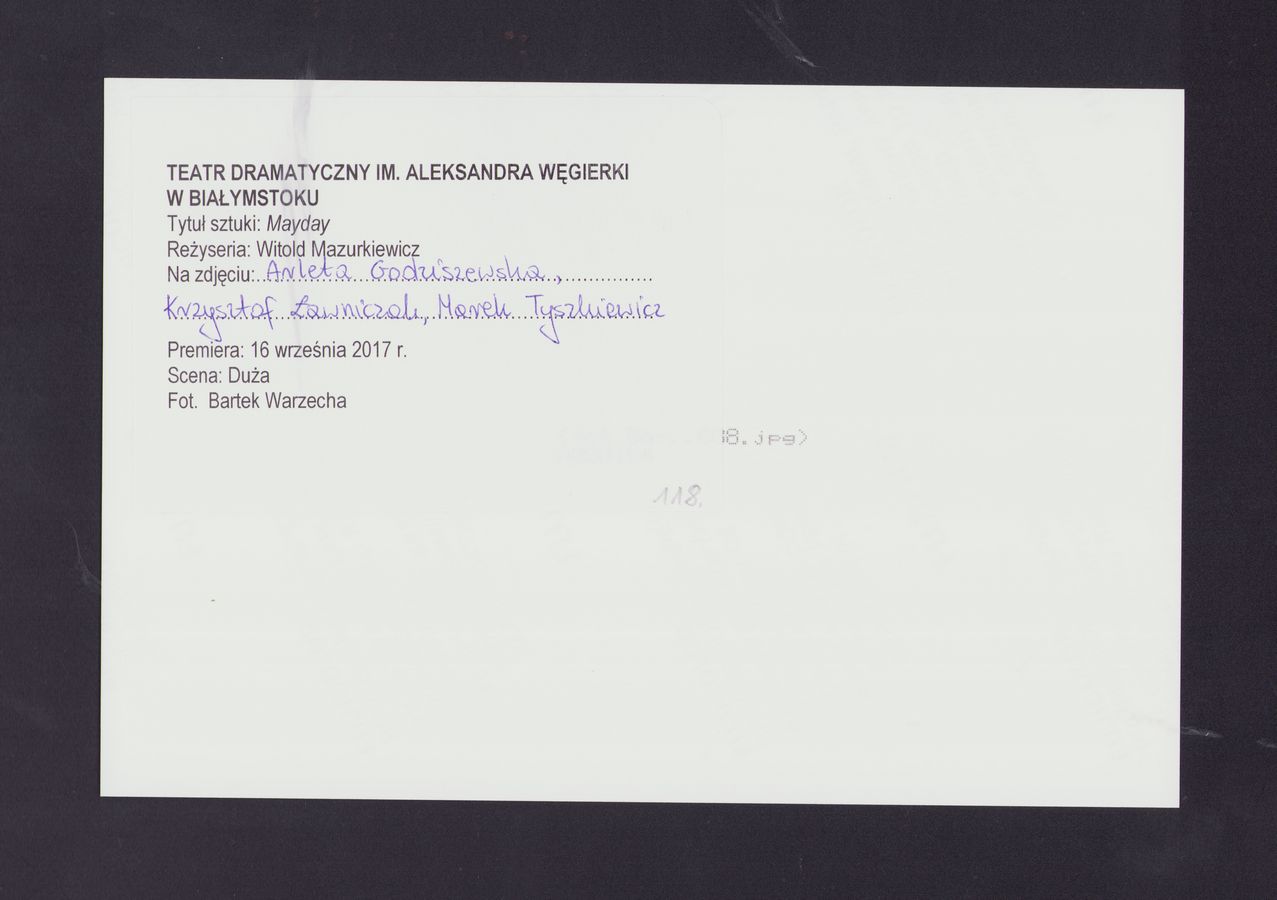 TEATR DRAMATYCZNY IM. ALEKSANDRA WĘGIERKI
W BIAŁYMSTOKU
Tytuł sztuki: Mayday
Reżyseria: Witold Mazurkiewicz
Na zdjęciu: Arleta Godziszewska,
Krzysztof Ławniczak, Marek Tyszkiewicz
Premiera: 16 września 2017 r.
Scena: Duża
Fot. Bartek Warzecha
8.jpg)
118.